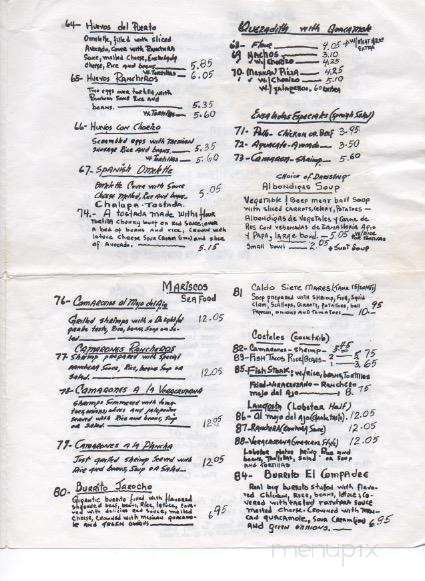 64- Huevos del Puerto
Omelette, filled with sliced
Avocado, cover with Ranchera
Sauce, melted cheese,
cheese, Rice and beans. 5.85
w. tortillas 6.05
65- Huevos Rancheros
Two eggs over tortilla, with
Ranchera Sauce Rice and
beans. 5.35
w. Tortillas 5.60
66- Huevos con Chorizo
Scrambled eggs with Mexican
sausage Rice and beans. 5.35
w. Tortillas 5.60
67- Spanish Omelette
Omelette Cover with Sauce
Cheese Melted, Rice and
beans. 5.05
Chalupa-Tostada.
74- A tostada made with flour
of avocado. 5.15
Quesadilla with Guacamole
68- Flour 4.05
69- Nachos 3.10
w/Chorizo 4.25
70- Mexican Pizza 4.25
w/Chorizo 5.10
w/Jalapeños, 60 extra
Ensaladas Especiales (
71- Pollo- Chicken or Beef 3.95
72- Aguacate-Avocado 3.50
73- Camaron-Shrimp 5.60
Choice of Dressing
Albondigas Soup
Vegetable & Beef meat ball Soup
with sliced carrots, celery, Potatoes-
Albondigas de Vegetales y Carne de
Res con verduras de Zanahoria Apio
y Papa, large bowl. 5.05
Small bowl 2.05
Mariscos
Sea Food
76- Camarones al Mojo del Ajo
Grilled shrimps with a Delightful
garlic taste, Rice, beans, Soup or Sa-
lad. 12.05
Camarones Rancheros
77- Shrimp prepared with special
ranchera Sauce, Rice, beans Soup or
Salad. 12.05
78- Camarones a la Veracruzana
Shrimps Simmered with toma-
toes, onions, olives and jalapeños
Served with Rice and beans, Soup
or Salad. 12.05
79- Camarones a la Plancha
Just grilled shrimp Served with
Rice and beans, Soup or Salad. 12.05
80- Burrito Jarocho
Gigantic burrito filled with flavored
shredded beef, beans, Rice, lettuce, toma-
cheese, Crowned with mexican guacamo-
le and green onions 6.95
81 Caldo Siete Mares
Soup prepared with Shrimp, Fish, Squid
clam, Scallops, Carrots, potatoes, bell
Pepper, onions and tomatoes 10.95
Cocteles (Cocktails)
82- Camarones- Shrimp 5.45
83- Fish Tacos Rice/Beans 2 5.75
3.65
85- Fish Steak: w/rice, beans, Tortillas
Fried-Veracruzano-Ranchero
mojo del Ajo 8.75
Langosta (Lobster Half)
86- Al mojo del Ajo (Garlic taste). 12.05
87- Ranchera (Ranchera Sauce) 12.05
88- Veracruzana (Veracruz Style) 12.05
Lobster plates bring Rice and
beans, Tortillas, Salad or Soup
and Tortillas
84- Burrito El Compadre
Real big burrito stuffed with flavo-
red chicken, Rice, beans, lettuce; co-
vered with tasted ranchera Sauce
melted cheese. Crowned with mexi-
can guacamole, sour cream (and
and green onions. 6.95
menupix